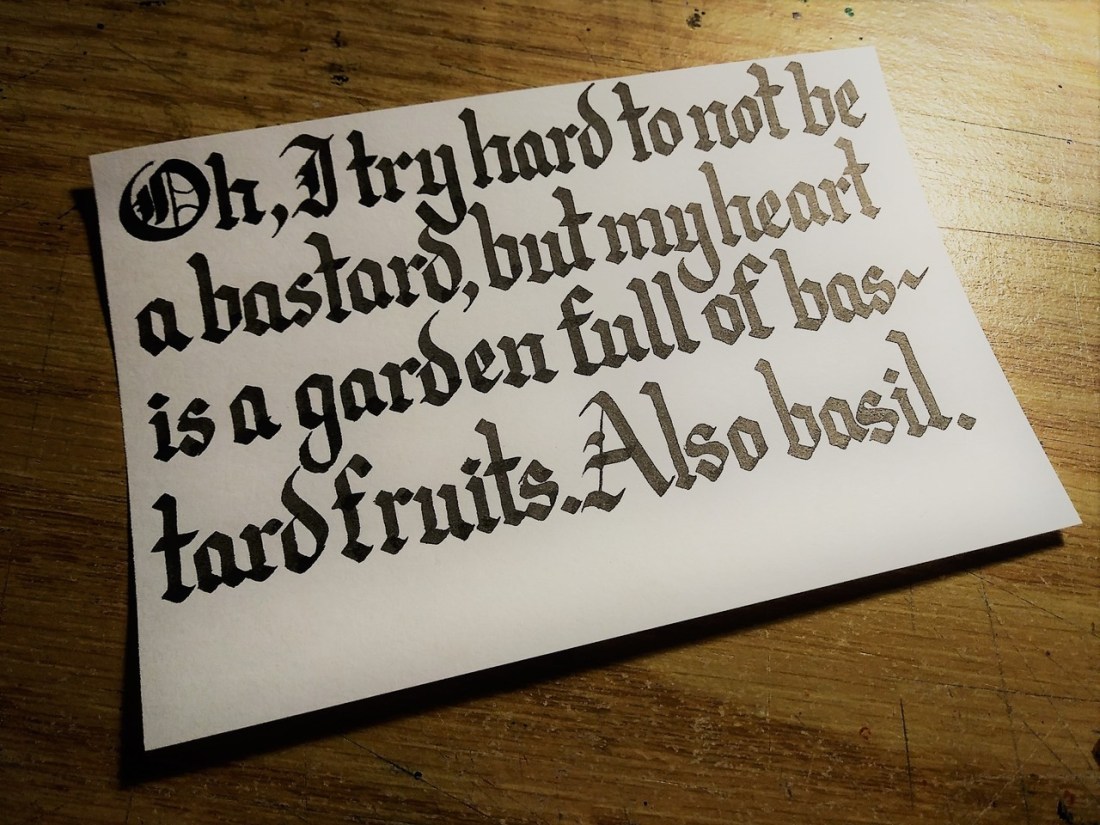 Oh, I try hard to not be
a bastard, but my heart
is a garden full of bas~
tard fruits. Also basil.